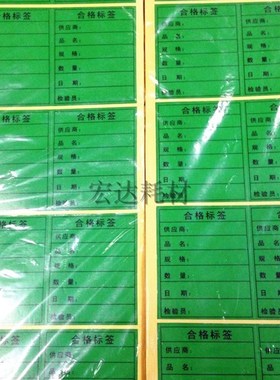 合格标签
供应商:
品 名:
规 格:
数 量:
日 期:
检验员:
合格标签
供应商:
品 名:
规 格:
数 量:
日 期:
检验员:
合格标签
供应商:
品 名:
规 格:
数 量:
日 期:
检验员:
合格标签
供应商:
品 名:
规 格:
数 量:
日 期:
检验员:
宏达耗材
合格标签
供应商:
品 名:
规 格:
数 量:
日 期:
检验员:
合格标签
供应商:
品 名:
规 格:
数 量:
日 期:
检验员:
合格标签
供应商:
品 名:
合格标签
供应商:
品 名: